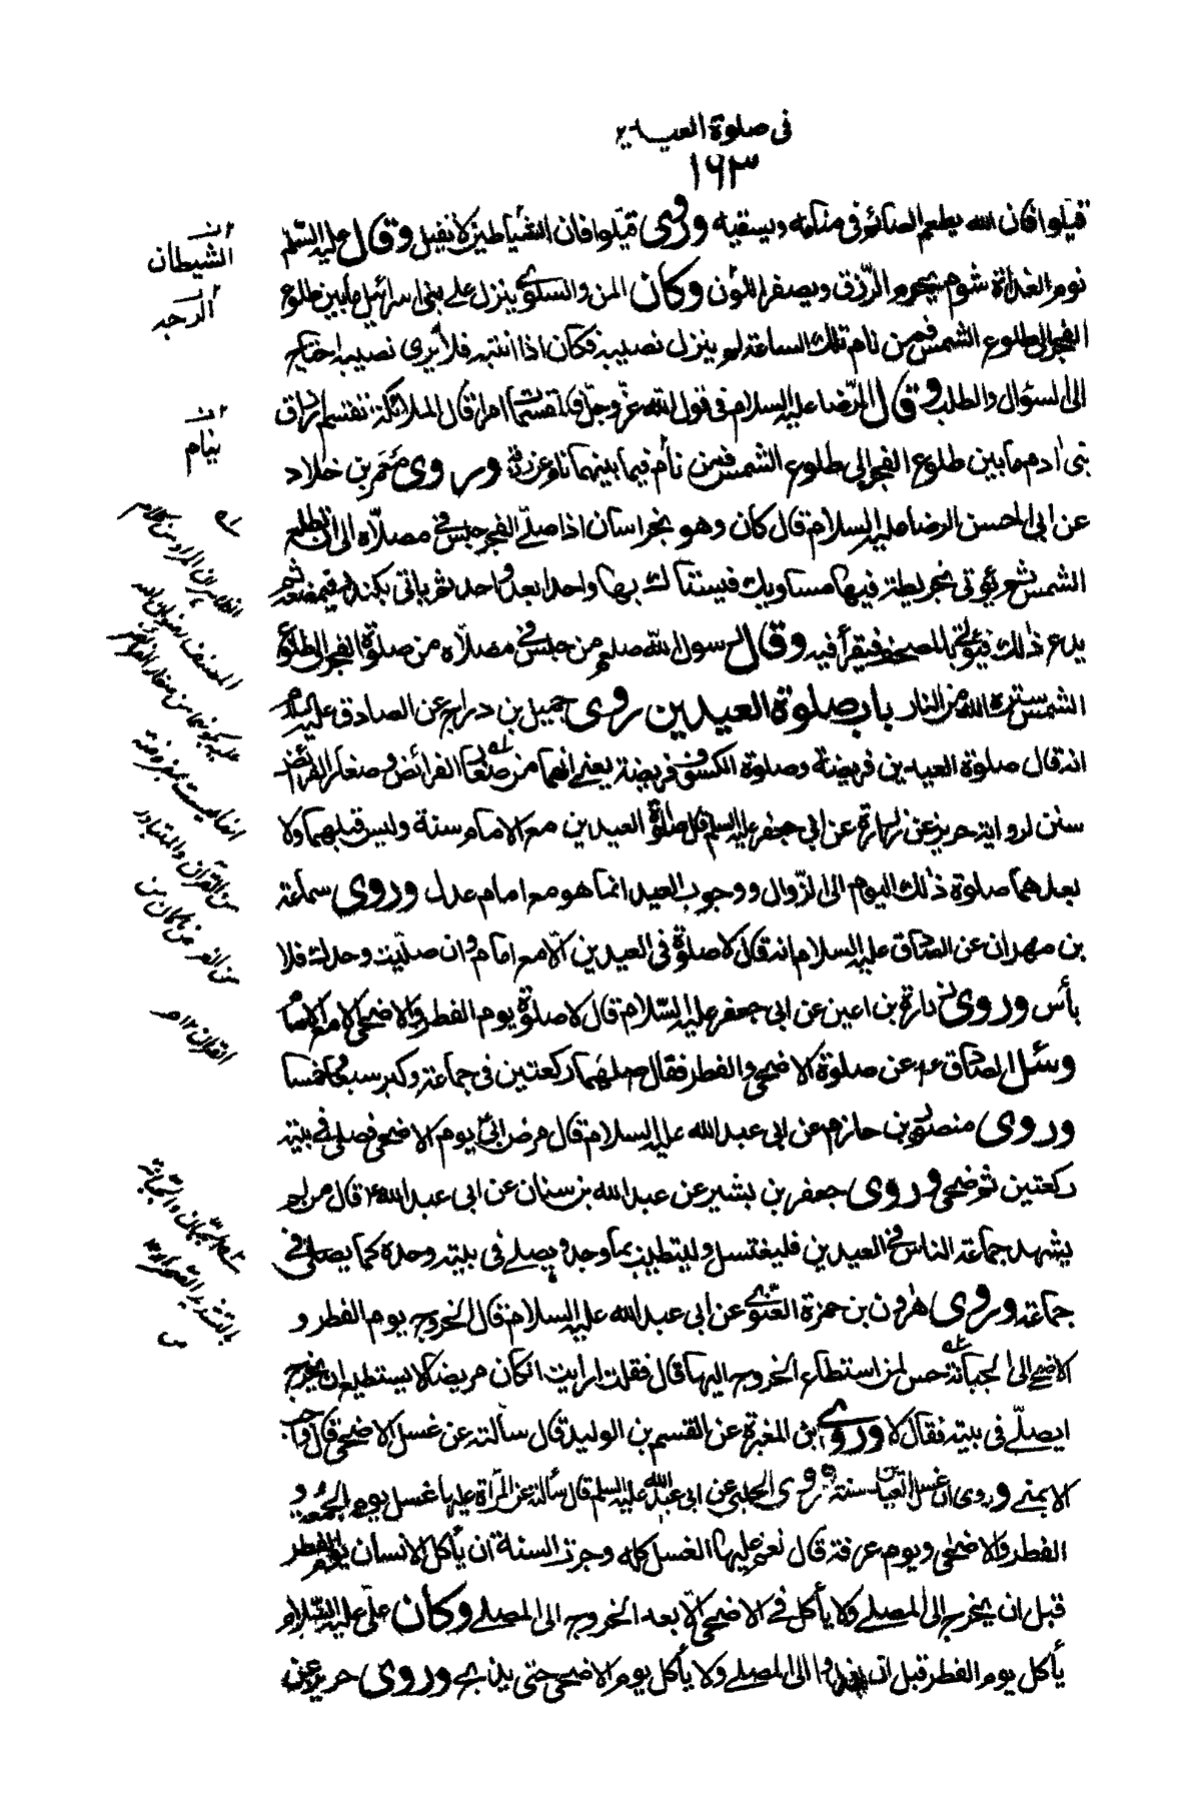 في صلوة العيدين
١٦٣
قيلوا فان الله يطعم الصائم في منامه ويسقيه وروى قيلوا فان الشياطين لا تقيل وقال عليه السلم
نومة الغداة شوم يحرم الرزق ويصفر اللون وكان المن والسلوى ينزل على بني اسرائيل ما بين طلوع
الفجر الى طلوع الشمس فمن نام تلك الساعة لم ينزل نصيبه فكان اذا انتبه فلا يرى نصيبه احتاج
الى السؤال والطلب وقال الرضا عليه السلام في قول الله عز وجل فالمقسمات امرا قال الملائكة تقسم ارزاق
بني ادم ما بين طلوع الفجر الى طلوع الشمس فمن نام فيما بينهما نام عن رزقه وروى معمر بن خلاد
عن ابي الحسن الرضا عليه السلام قال كان وهو بخراسان اذا صلى الفجر جلس في مصلاه الى ان تطلع
الشمس ثم يؤتى بخريطة فيها مساويك فيستاك بها واحدا بعد واحد ثم ياتى بكندر فيمضغه ثم
يدع ذلك فيؤتى بالمصحف فيقرأ فيه وقال رسول الله صلعم من جلس في مصلاه من صلوة الفجر الى طلوع
الشمس ستره الله من النار باب صلوة العيدين روى جميل بن دراج عن الصادق عليه السلام
انه قال صلوة العيدين فريضة وصلوة الكسوف فريضة يعني انهما من صغار الفرائض وصغار الفرائض
سنن لرواية حريز عن زرارة عن ابي جعفر عليه السلم قال صلوة العيدين مع الامام سنة وليس قبلهما ولا
بعدهما صلوة ذلك اليوم الى الزوال ووجوب العيد انما هو مع امام عدل وروى سماعة
بن مهران عن الصادق عليه السلام انه قال لا صلوة في العيدين الا مع امام وان صليت وحدك فلا
بأس وروى زرارة بن اعين عن ابي جعفر عليه السلام قال لا صلوة يوم الفطر والاضحى الا مع الامام
وسئل الصادق ع عن صلوة الاضحى والفطر فقال صلهما ركعتين في جماعة وكبر سبعا وخمسا
وروى منصور بن حازم عن ابي عبد الله عليه السلام قال مرض ابي يوم الاضحى فصلى في بيته
ركعتين ثم ضحى وروى جعفر بن بشير عن عبد الله بن سنان عن ابي عبد الله ع قال من لم
يشهد جماعة الناس في العيدين فليغتسل وليتطيب بما وجد ويصلي في بيته وحده كما يصلي في
جماعة وروى هرون بن حمزة الغنوي عن ابي عبد الله عليه السلام قال الخروج يوم الفطر و
الاضحى الى الجبانة حسن لمن استطاع الخروج اليها قال فقلت ارايت ان كان مريضا لا يستطيع ان يخرج
ايصلي في بيته فقال لا وروى ابن المغيرة عن القسم بن الوليد قال سالته عن غسل الاضحى قال واجب
الا بمنى وروى ان غسل العيدين سنة وروى الحلبي عن ابي عبد الله عليه السلم قال سألته عن المرأة عليها غسل يوم الجمعة و
الفطر والاضحى ويوم عرفة قال نعم عليها الغسل كله وجرت السنة ان يأكل الانسان يوم الفطر
قبل ان يخرج الى المصلى ولا يأكل في الاضحى الا بعد الخروج الى المصلى وكان على عليه السلام
يأكل يوم الفطر قبل ان يغدو الى المصلى ولا يأكل يوم الاضحى حتى يذبح وروى حريز عن
الشيطان
ينام